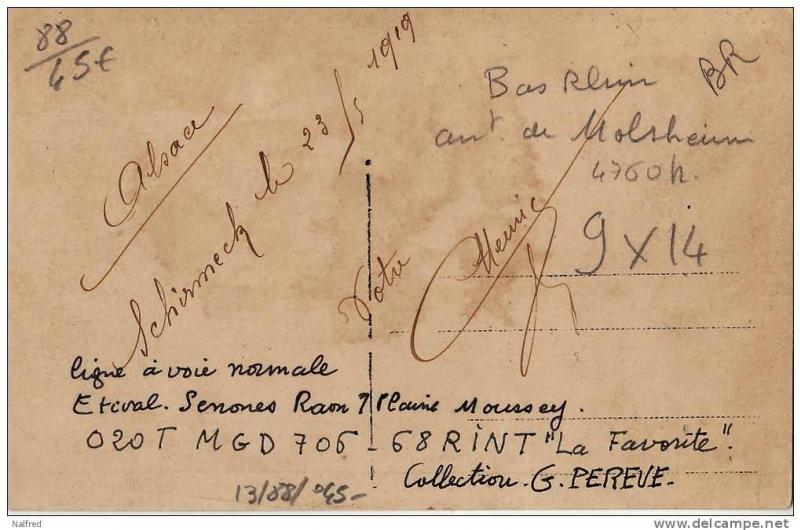 88
45€
Alsace
Schirmeck le 23/5 1919
Votre
BR
Bas Rhin
arrt. de Molsheim
4760h.
9 x 14
ligne à voie normale
Etival. Senones Raon Plaine Moussey.
020T MGD 706 - 68 RINT "La Favorite".
Collection. G. PEREVE.
13/88/045-
Nalfred
www.delcampe.net